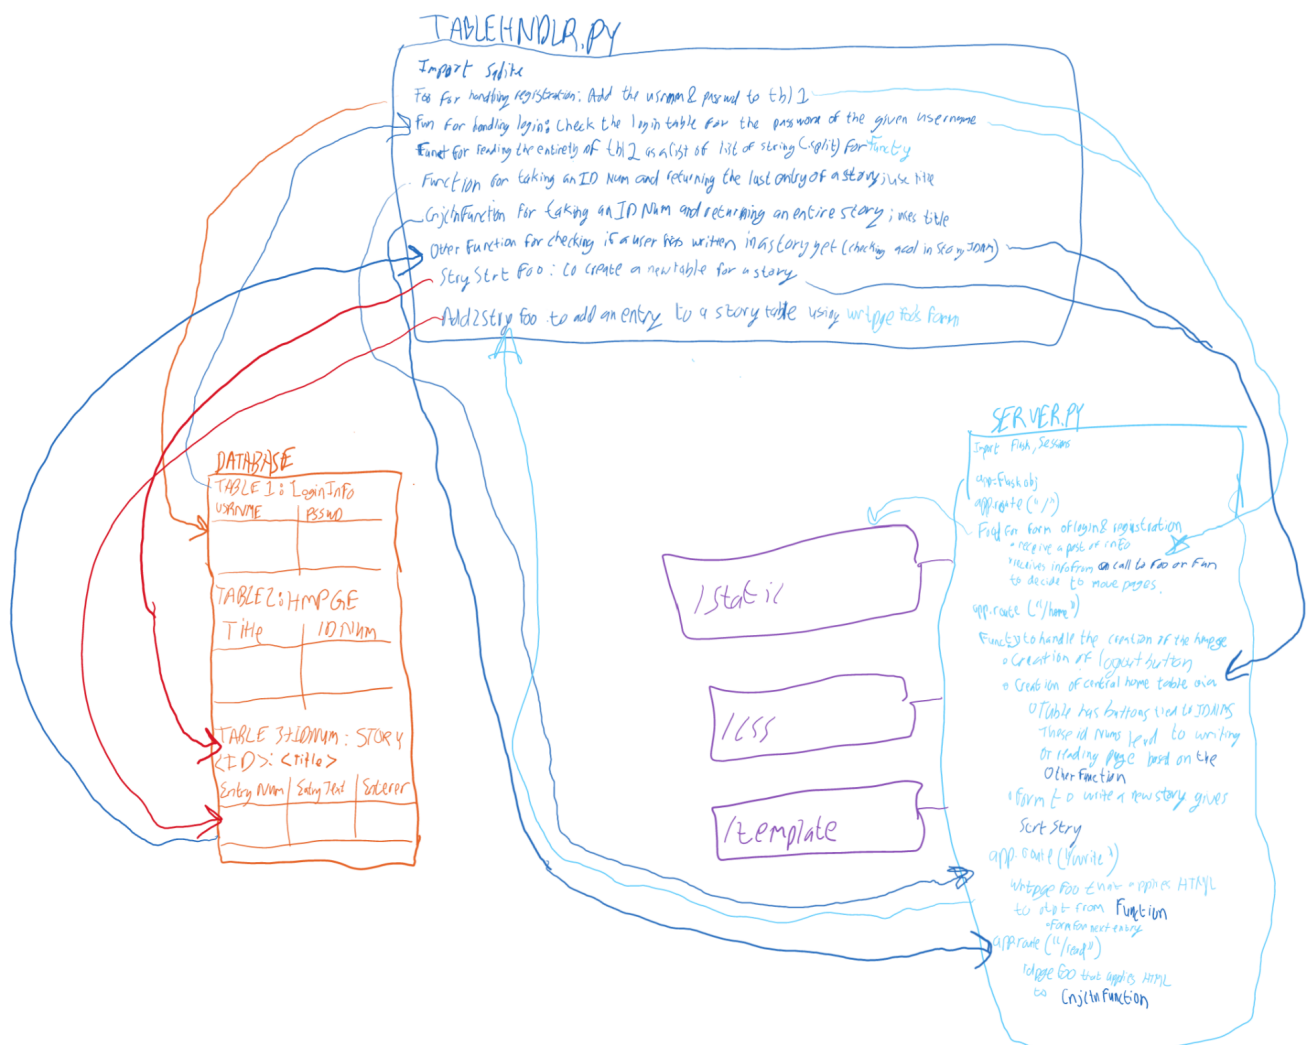 TABLEHNDLR.PY
Import Sqlite
Foo for handling registration: Add the usrnm & passwd to tbl 1
Fun for handling login: Check the login table for the password of the given username
Funct for reading the entirety of tbl 2 as a list of list of string (.split) for Functy
Function for taking an ID Num and returning the last entry of a story; use title
CnjctnFunction for taking an ID Num and returning an entire story; uses title
Other Function for checking if a user has written in a story yet (checking acol in Story IDNM)
Stry Strt Foo: to create a new table for a story
Add2stry foo to add an entry to a story table using wrtpge foo's form
DATABASE
TABLE 1: LoginInfo
USRNME PSSWD
TABLE 2: HMPGE
Title ID Num
TABLE 3+IDNum: STORY
<ID>: <title>
Entry Num Entry Text Enterer
/static
/css
/template
SERVER.PY
Import Flask, Sessions
app=flask obj
app.route("/")
for form of login & registration
• receive a post of info
• receives info from a call to Foo or Fun
to decide to move pages.
app.route("/home")
Functy to handle the creation of the hmpge
• Creation of logout button
• Creation of central home table via
Table has buttons tied to IDNMS
These id nums lead to writing
or reading page based on the
Other Function
• Form to write a new story gives
Strt Stry
app.route("/write")
wrtpge foo that applies HTML
to otpt from Function
• Form for next entry
app.route("/read")
rdpge foo that applies HTML
to CnjctnFunction